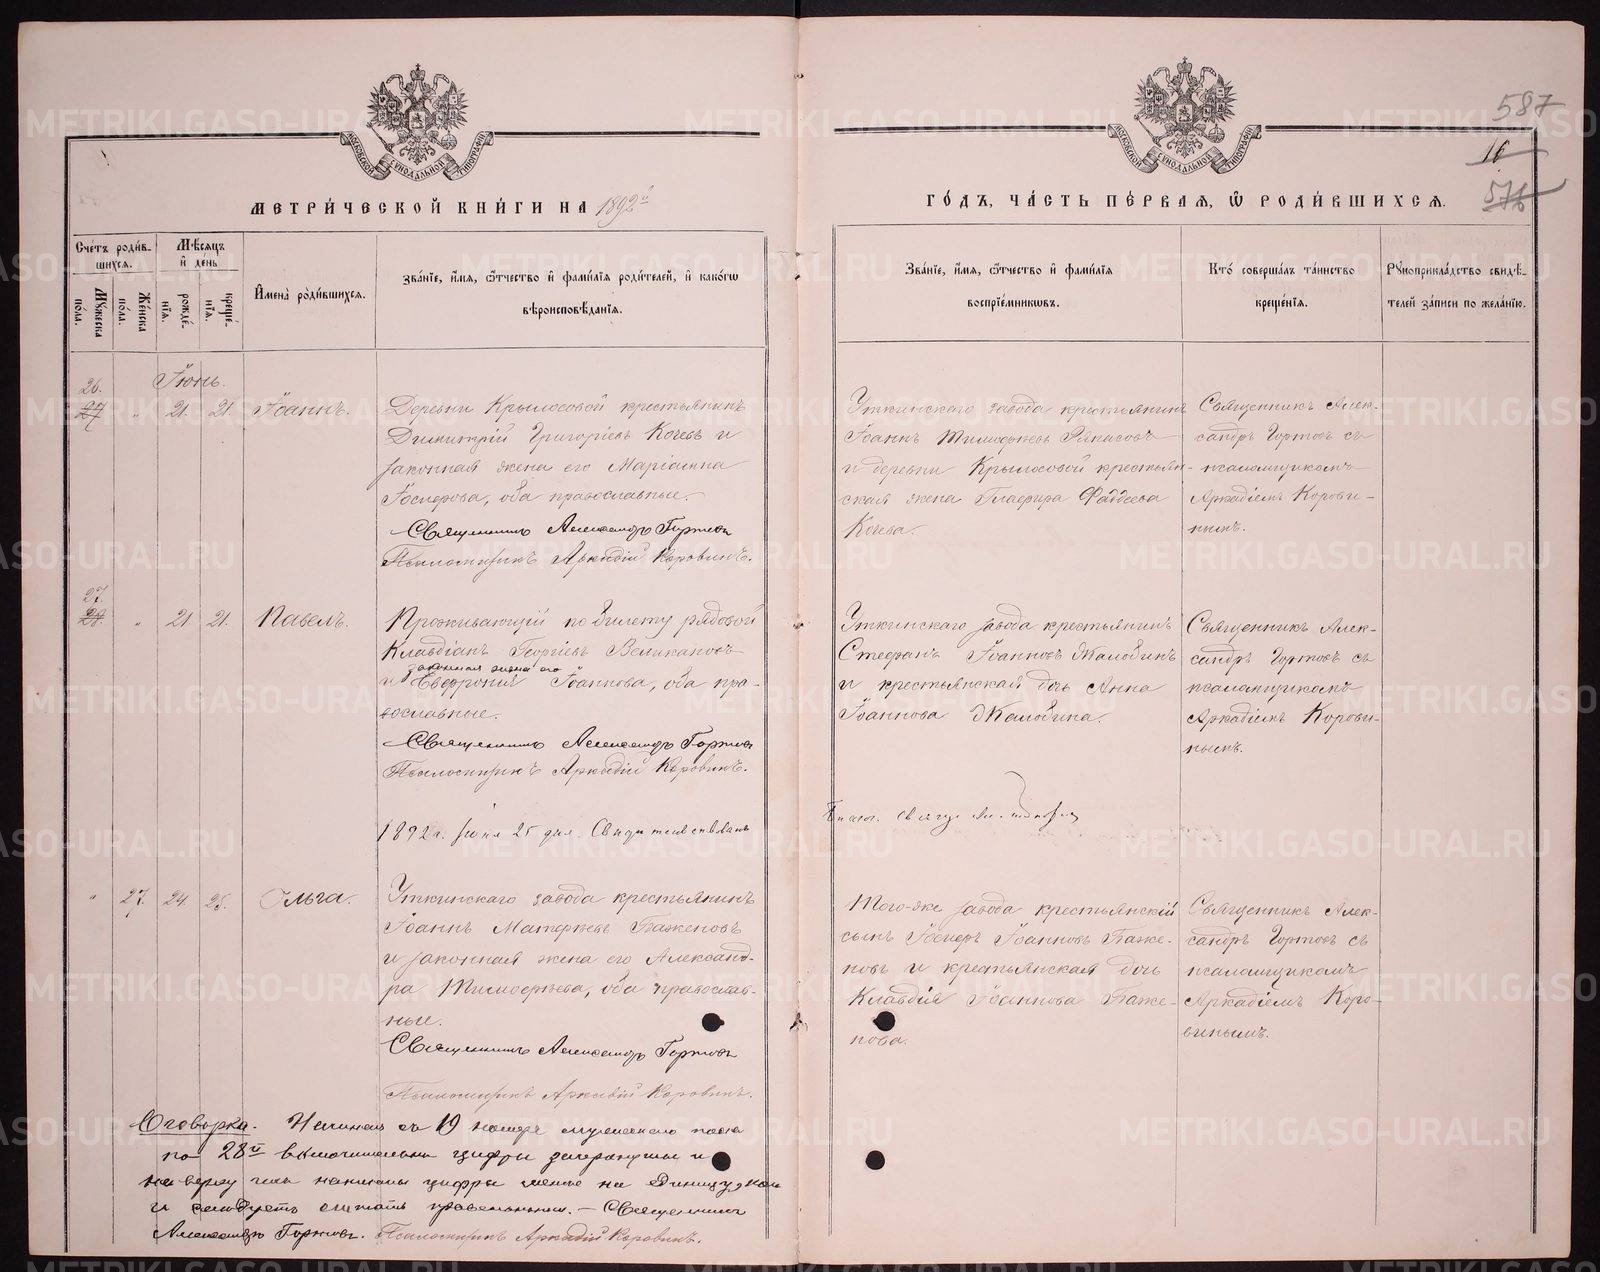 587
16
576
МОСКОВСКОЙ СѴНОДАЛЬНОЙ ТИПОГРАФІИ
МОСКОВСКОЙ СѴНОДАЛЬНОЙ ТИПОГРАФІИ
МЕТРИ́ЧЕСКОЙ КНИ́ГИ НА 1892й
ГО́ДЪ, ЧА́СТЬ ПЕ́РВАЯ, Ѽ РОДИ́ВШИХСЯ.
Сче́тъ роди́вшихся.
Мꙋжеска по́ла.
Же́нска по́ла.
Мѣ́сяцъ и҆ де́нь
рожде́нїя.
креще́нїя.
И҆мена̀ роди́вшихся.
Зва́нїе, и҆́мя, ѻ҆́тчество и҆ фами́лїя роди́телей, и҆ како́гѡ
вѣроисповѣ́данїя.
Зва́нїе, и҆́мя, ѻ҆́тчество и҆ фами́лїя
воспрїе́мникѡвъ.
Кто́ соверша́лъ та́инство
креще́нїя.
Рꙋкоприкла́дство свидѣ́-
телей за́писи по жела́нїю.
Іюнь.
26.
27 „ 21. 21. Іоаннъ.
Деревни Крылосовой крестьянинъ
Димитрій Григоріевъ Кочевъ и
законная жена его Маріамна
Іосифова, оба православные.
Священникъ Александръ Гортовъ
Псаломщикъ Аркадій Коровинъ.
Уткинскаго завода крестьянинъ
Іоаннъ Тимофеевъ
и деревни Крылосовой крестьян-
ская жена Глафира Фаддеева
Кочева.
Священникъ Алек-
сандръ Гортовъ съ
псаломщикомъ
Аркадіемъ Корови-
нымъ.
27.
28. „ 21 21. Павелъ.
Проживающій по билету рядовой
Клавдіанъ Георгіевъ Великановъ
законная жена его
и Евфронія Іоаннова, оба пра-
вославные.
Священникъ Александръ Гортовъ
Псаломщикъ Аркадій Коровинъ.
Уткинскаго завода крестьянинъ
Стефанъ Іоанновъ Жалобинъ
и крестьянская дочь Анна
Іоаннова Жалобина.
Священникъ Алек-
сандръ Гортовъ съ
псаломщикомъ
Аркадіемъ Корови-
нымъ.
1892 г. Іюня 25 дня. Свидетельствовалъ
„ 27. 24. 25. Ольга.
Уткинскаго завода крестьянинъ
Іоаннъ Матфеевъ Баженовъ
и законная жена его Александ-
ра Тимофеева, оба православ-
ные.
Священникъ Александръ Гортовъ
Псаломщикъ Аркадій Коровинъ.
Того-же завода крестьянскій
сынъ Іосифъ Іоанновъ Баже-
новъ и крестьянская дочь
Клавдія Іоаннова Баже-
нова.
Священникъ Алек-
сандръ Гортовъ съ
псаломщикомъ
Аркадіемъ Коро-
винымъ.
Оговорка. Начиная съ 19 номера мужескаго пола
по 28й включительно цифры зачеркнутыи и
на верху ихъ написаны цифры менее на единицу, кои
и следуетъ считать правильными. – Священникъ
Александръ Гортовъ. Псаломщикъ Аркадій Коровинъ.
METRIKI.GASO-URAL.RU